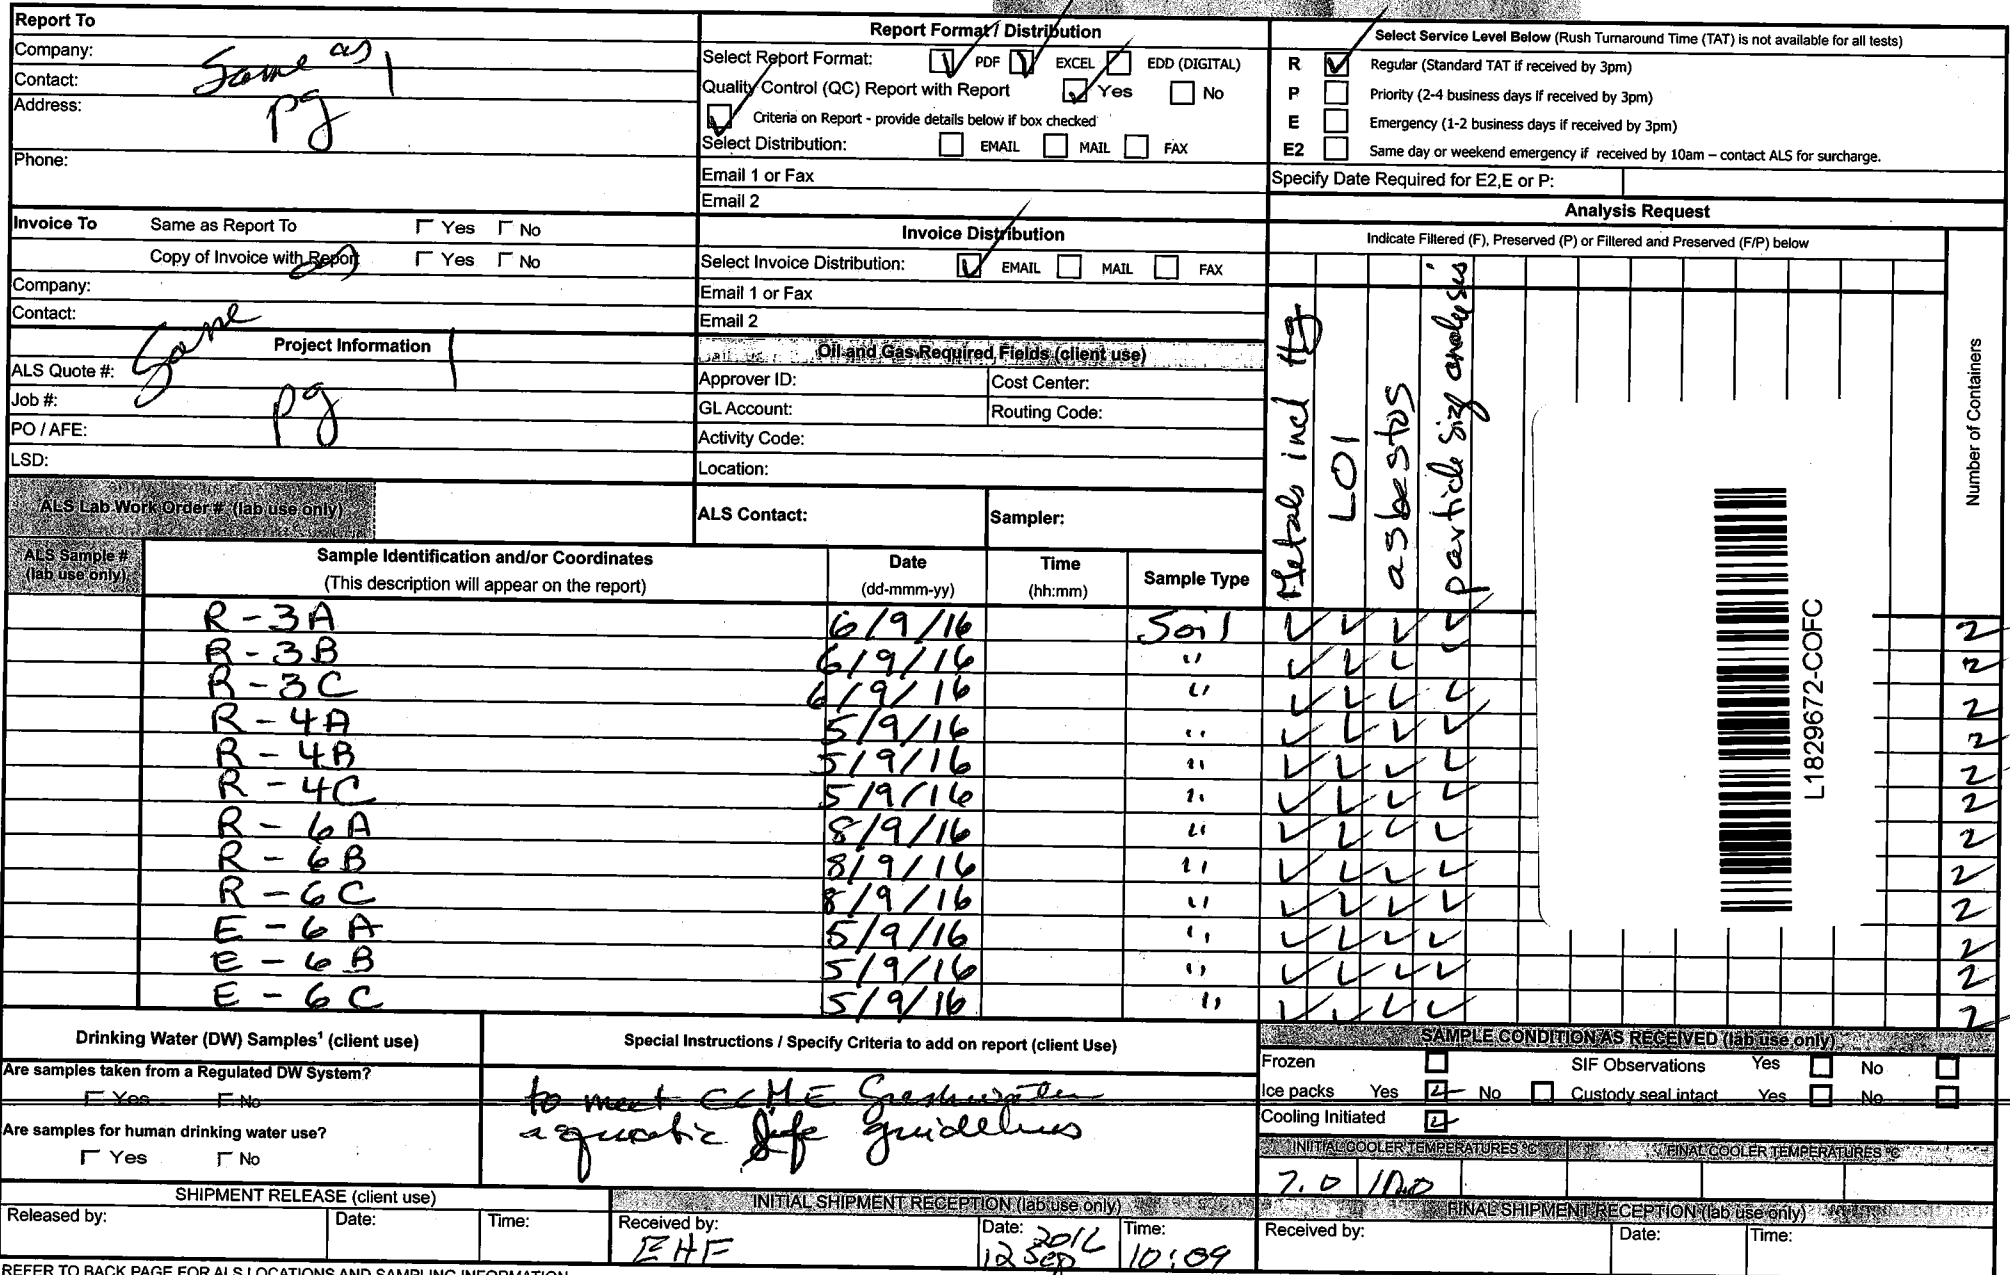 Report To
Company:
Contact:
Address:
Same as
pg 1
Phone:
Invoice To Same as Report To Yes No
Copy of Invoice with Report Yes No
Company:
Contact:
Same
pg 1
Project Information
ALS Quote #:
Job #:
PO / AFE:
LSD:
ALS Lab Work Order # (lab use only)
Report Format / Distribution
Select Report Format: PDF EXCEL EDD (DIGITAL)
Quality Control (QC) Report with Report Yes No
Criteria on Report - provide details below if box checked
Select Distribution: EMAIL MAIL FAX
Email 1 or Fax
Email 2
Invoice Distribution
Select Invoice Distribution: EMAIL MAIL FAX
Email 1 or Fax
Email 2
Oil and Gas Required Fields (client use)
Approver ID: Cost Center:
GL Account: Routing Code:
Activity Code:
Location:
ALS Contact: Sampler:
Select Service Level Below (Rush Turnaround Time (TAT) is not available for all tests)
R Regular (Standard TAT if received by 3pm)
P Priority (2-4 business days if received by 3pm)
E Emergency (1-2 business days if received by 3pm)
E2 Same day or weekend emergency if received by 10am – contact ALS for surcharge.
Specify Date Required for E2,E or P:
Analysis Request
Indicate Filtered (F), Preserved (P) or Filtered and Preserved (F/P) below
Metals incl Hg
LOI
asbestos
particle size analysis
Number of Containers
L1829672-COFC
ALS Sample # (lab use only) Sample Identification and/or Coordinates (This description will appear on the report) Date (dd-mmm-yy) Time (hh:mm) Sample Type
R-3A 6/9/16 Soil 2
R-3B 6/9/16 " 2
R-3C 6/9/16 " 2
R-4A 5/9/16 " 2
R-4B 5/9/16 " 2
R-4C 5/9/16 " 2
R-6A 8/9/16 " 2
R-6B 8/9/16 " 2
R-6C 8/9/16 " 2
E-6A 5/9/16 " 2
E-6B 5/9/16 " 2
E-6C 5/9/16 " 2
Drinking Water (DW) Samples¹ (client use)
Are samples taken from a Regulated DW System?
Yes No
Are samples for human drinking water use?
Yes No
Special Instructions / Specify Criteria to add on report (client Use)
to meet CCME freshwater
aquatic life guidelines
SAMPLE CONDITION AS RECEIVED (lab use only)
Frozen SIF Observations Yes No
Ice packs Yes No Custody seal intact Yes No
Cooling Initiated
INITIAL COOLER TEMPERATURES ºC FINAL COOLER TEMPERATURES ºC
7.0 10.0
SHIPMENT RELEASE (client use) INITIAL SHIPMENT RECEPTION (lab use only) FINAL SHIPMENT RECEPTION (lab use only)
Released by: Date: Time: Received by: EHF Date: 2016 12 Sep Time: 10:09 Received by: Date: Time:
REFER TO BACK PAGE FOR ALS LOCATIONS AND SAMPLING INFORMATION